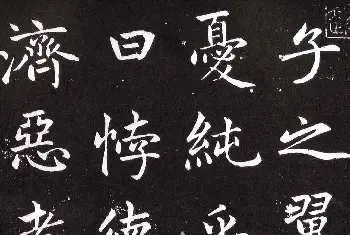 子之翼
憂純
曰悖德
濟惡者